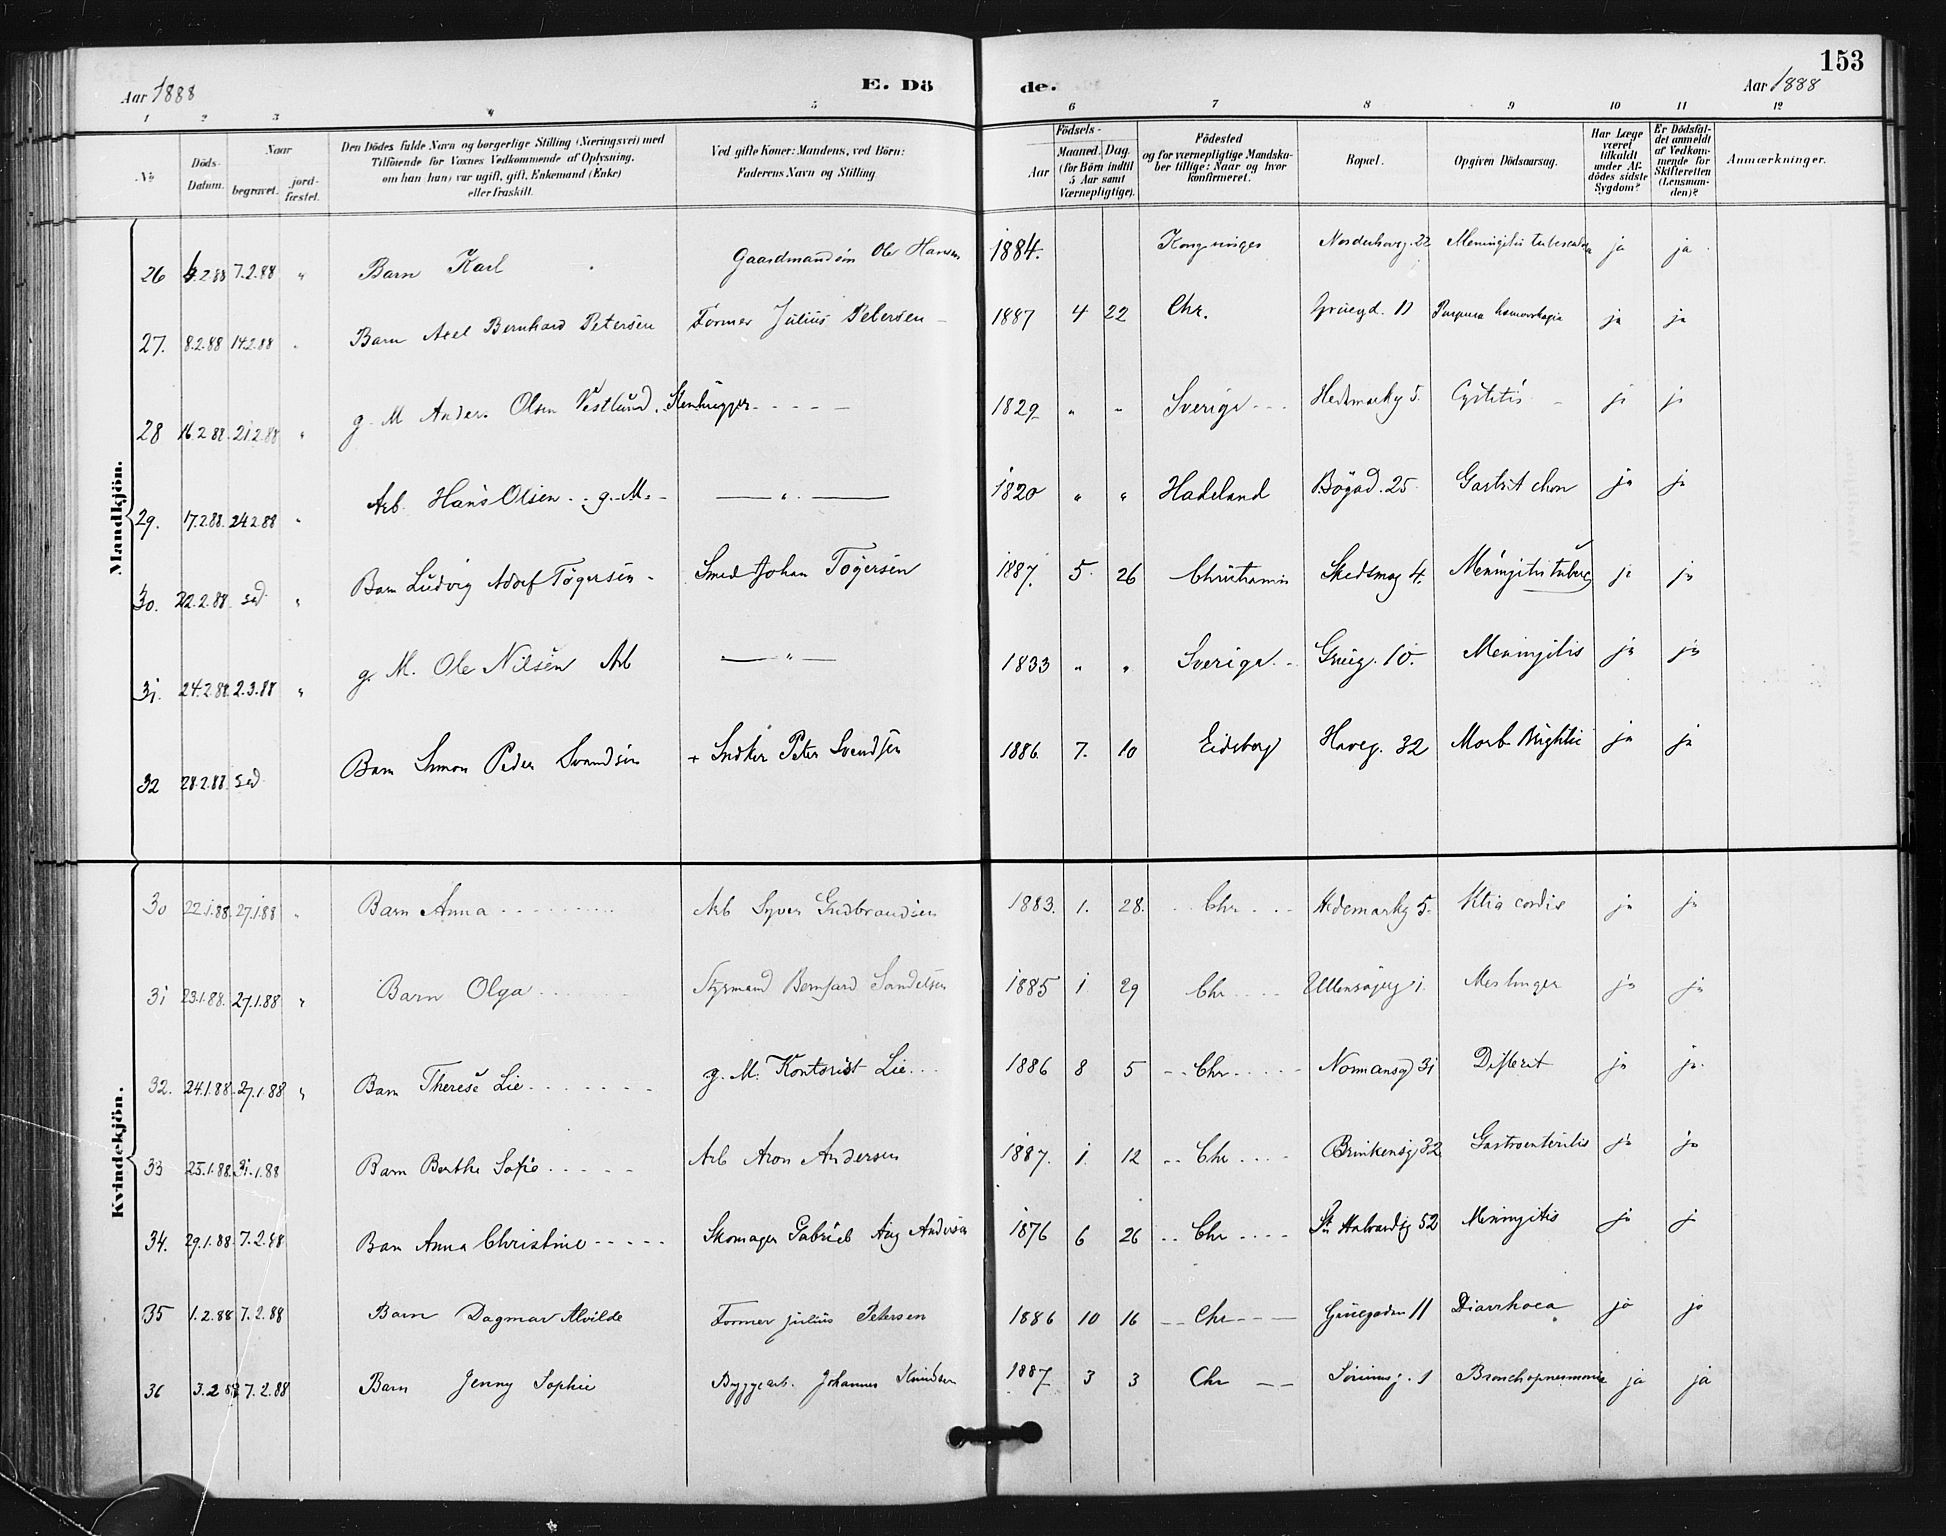 153
Aar 1888 E. Dö de. Aar 1888
1 2 3 4 5 6 7 8 9 10 11 12
No Döds-Datum. Naar begravet. jordfæstet. Den Dödes fulde Navn og borgerlige Stilling (Næringsvei) med Tilföiende for Voxnes Vedkommende af Oplysning, om han (hun) var ugift, gift, Enkemand (Enke) eller fraskilt. Ved gifte Koner: Mandens, ved Börn: Faderens Navn og Stilling Födsels- Aar Maaned. Dag. (for Börn indtil 5 Aar samt Værnepligtige). Födested og for værnepligtige Mandskaber tillige: Naar og hvor konfirmeret. Bopæl. Opgiven Dödsaarsag. Har Læge været tilkaldt under Afdödes sidste Sygdom? Er Dödsfaldet anmeldt af Vedkommende for Skifteretten (Lensmanden)? Anmærkninger.
Mandkjön.
26 2.88 7.2.88 " Barn Karl Gaardmandsön Ole Hansen 1884. Kongsvinger Norderhovg. 22 Meningitis ja ja
27. 8.2.88 14.2.88 " Barn Axel Bernhard Petersen Former Julius Petersen 1887 4 22 Chr. Gruegd. 11 Purpura ja ja
28 16.2.88. 21.2.88 " g. M Anders Olsen Vestlund. Stenhugger 1829 " " Sverige Hedemarkg 5. Cystitis ja ja
29. 17.2.88. 24.2.88 " Arb. Hans Olsen .. g. M. — " — 1820 " " Hadeland Bögad. 25. Gastrit chon ja ja
30. 22.2.88. sed. " Barn Ludvig Adolf Tögersen Smed Johan Tögersen 1887. 5. 26 Christiania Skedsmog 4. Meningitis tuberc ja ja
31. 24.2.88. 2.3.88 " g. M. Ole Nilsen Arb — " — 1833 " " Sverige Grueg. 10. Meningitis ja ja
32 28.2.88. sed. Barn Simon Peder Svendsen Snekker Peter Svendsen 1886. 7. 10 Eidsberg Haveg. 32 Morb Brightii ja ja
Kvindekjön.
30 22.1.88. 27.1.88 " Barn Anna Arb Syver Gudbrandsen 1883. 1. 28. Chr Hedemarkg 5. cordis ja ja
31 23.1.88. 27.1.88 " Barn Olga Styrmand Bernhard Sandelsen 1885 1 29 Chr Ullensagerg 1. Meslinger ja ja
32. 24.1.88. 27.1.88 " Barn Therese Lie g. M. Kontorist Lie 1886 8 5 Chr Normansgd 31 Difterit ja ja.
33 25.1.88. 31.1.88 Barn Berthe Sofie Arb Aron Andersen 1887. 1. 12 Chr Brinkensg 32 Gastroenteritis ja ja
34. 29.1.88. 7.2.88 Barn Anna Christine Skomager Gabriel Aug Andersen 1876 6 26 Chr St Halvardsg 52 Meningitis ja ja
35 1.2.88 7.2.88 Barn Dagmar Alvilde Former Julius Petersen 1886 10 16 Chr Gruegaden 11 Diarrhoea ja ja
36 3.2.88 7.2.88 Barn Jenny Sophie Byggearb. Johannes Knudsen 1887 3 3 Chr 1 Bronchopneumonie ja ja